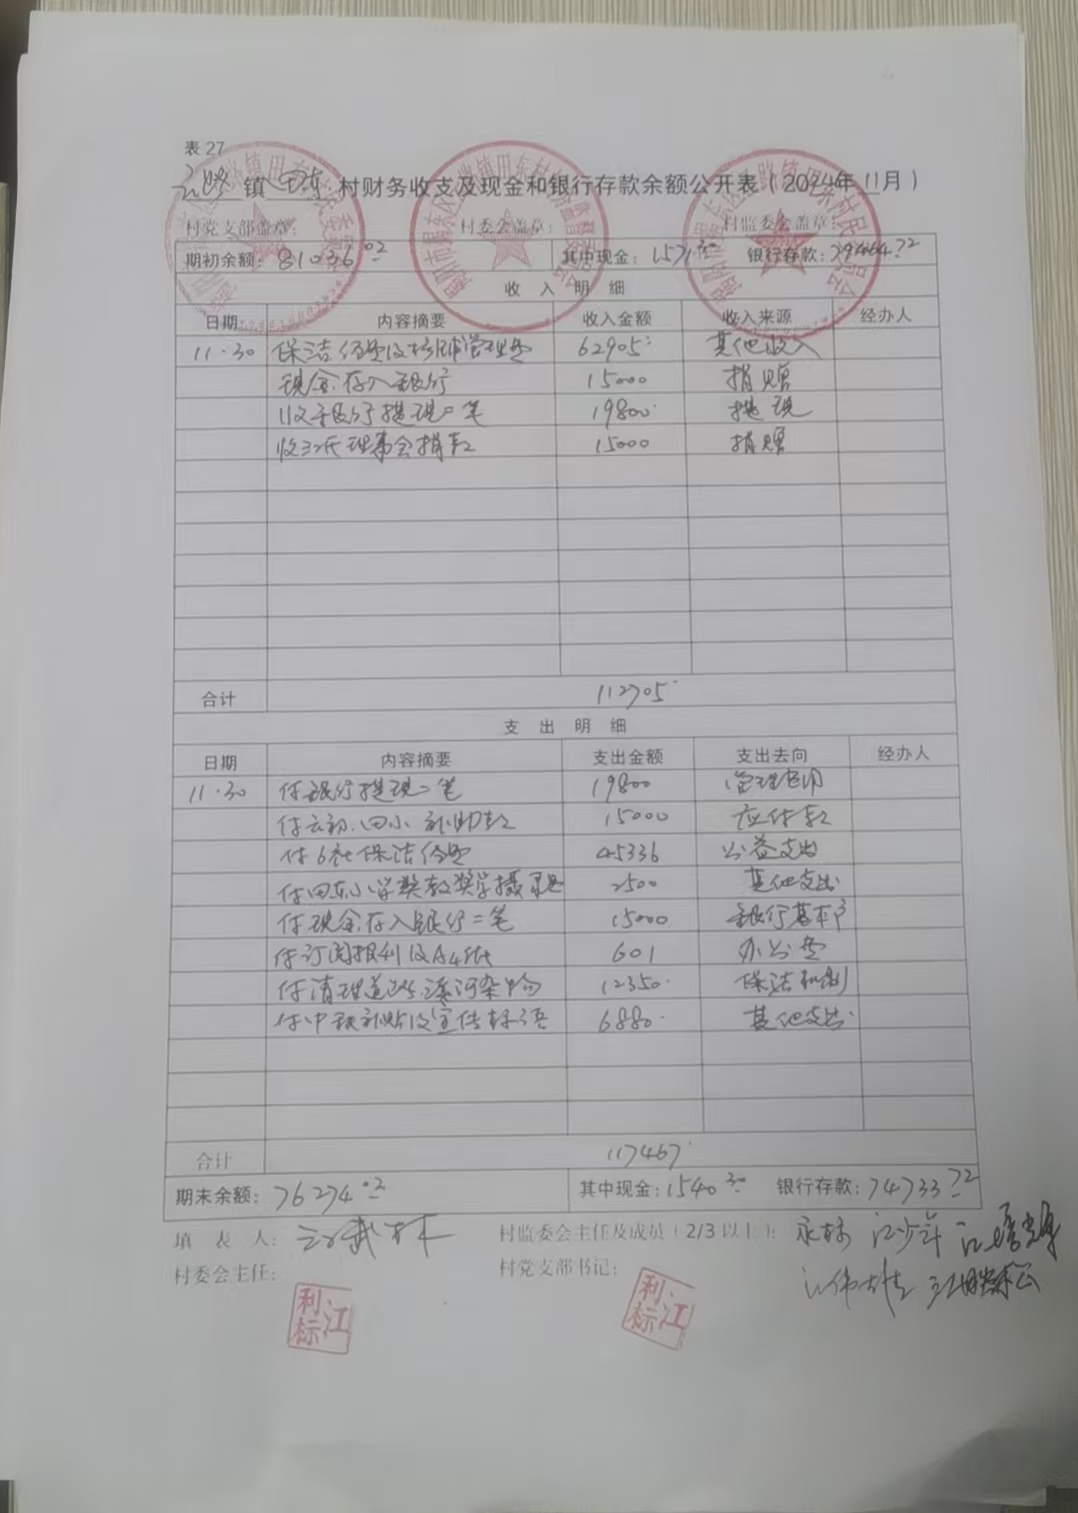 表 27
云路镇 田东 村财务收支及现金和银行存款余额公开表（2024年11月）
村党支部盖章： 村委会盖章： 村监委会盖章：
期初余额：81036.02 其中现金：1571.30 银行存款：79464.72
收 入 明 细
日期 内容摘要 收入金额 收入来源 经办人
11.30 保洁经费及 管理费 62905 其他收入
现金存入银行 15000 捐赠
收到银行提现二笔 19800 提现
收江氏理事会捐款 15000 捐赠
合计 112705
支 出 明 细
日期 内容摘要 支出金额 支出去向 经办人
11.30 付银行提现二笔 19800 管理费用
付云初、田小补助款 15000 应付款
付6社保洁经费 45336 公益支出
付田东小学奖教奖学摄录费 2500 其他支出
付现金存入银行二笔 15000 银行基本户
付订阅报刊及A4纸 601 办公费
付清理道路、溪河杂物 12350 保洁机制
付中秋补贴及宣传标语 6880 其他支出
合计 117467
期末余额：76274.02 其中现金：1540.30 银行存款：74733.72
填 表 人：江武林 村监委会主任及成员（2/3以上）： 永标 江少年
村委会主任： 村党支部书记： 江伟雄
江利标 江利标